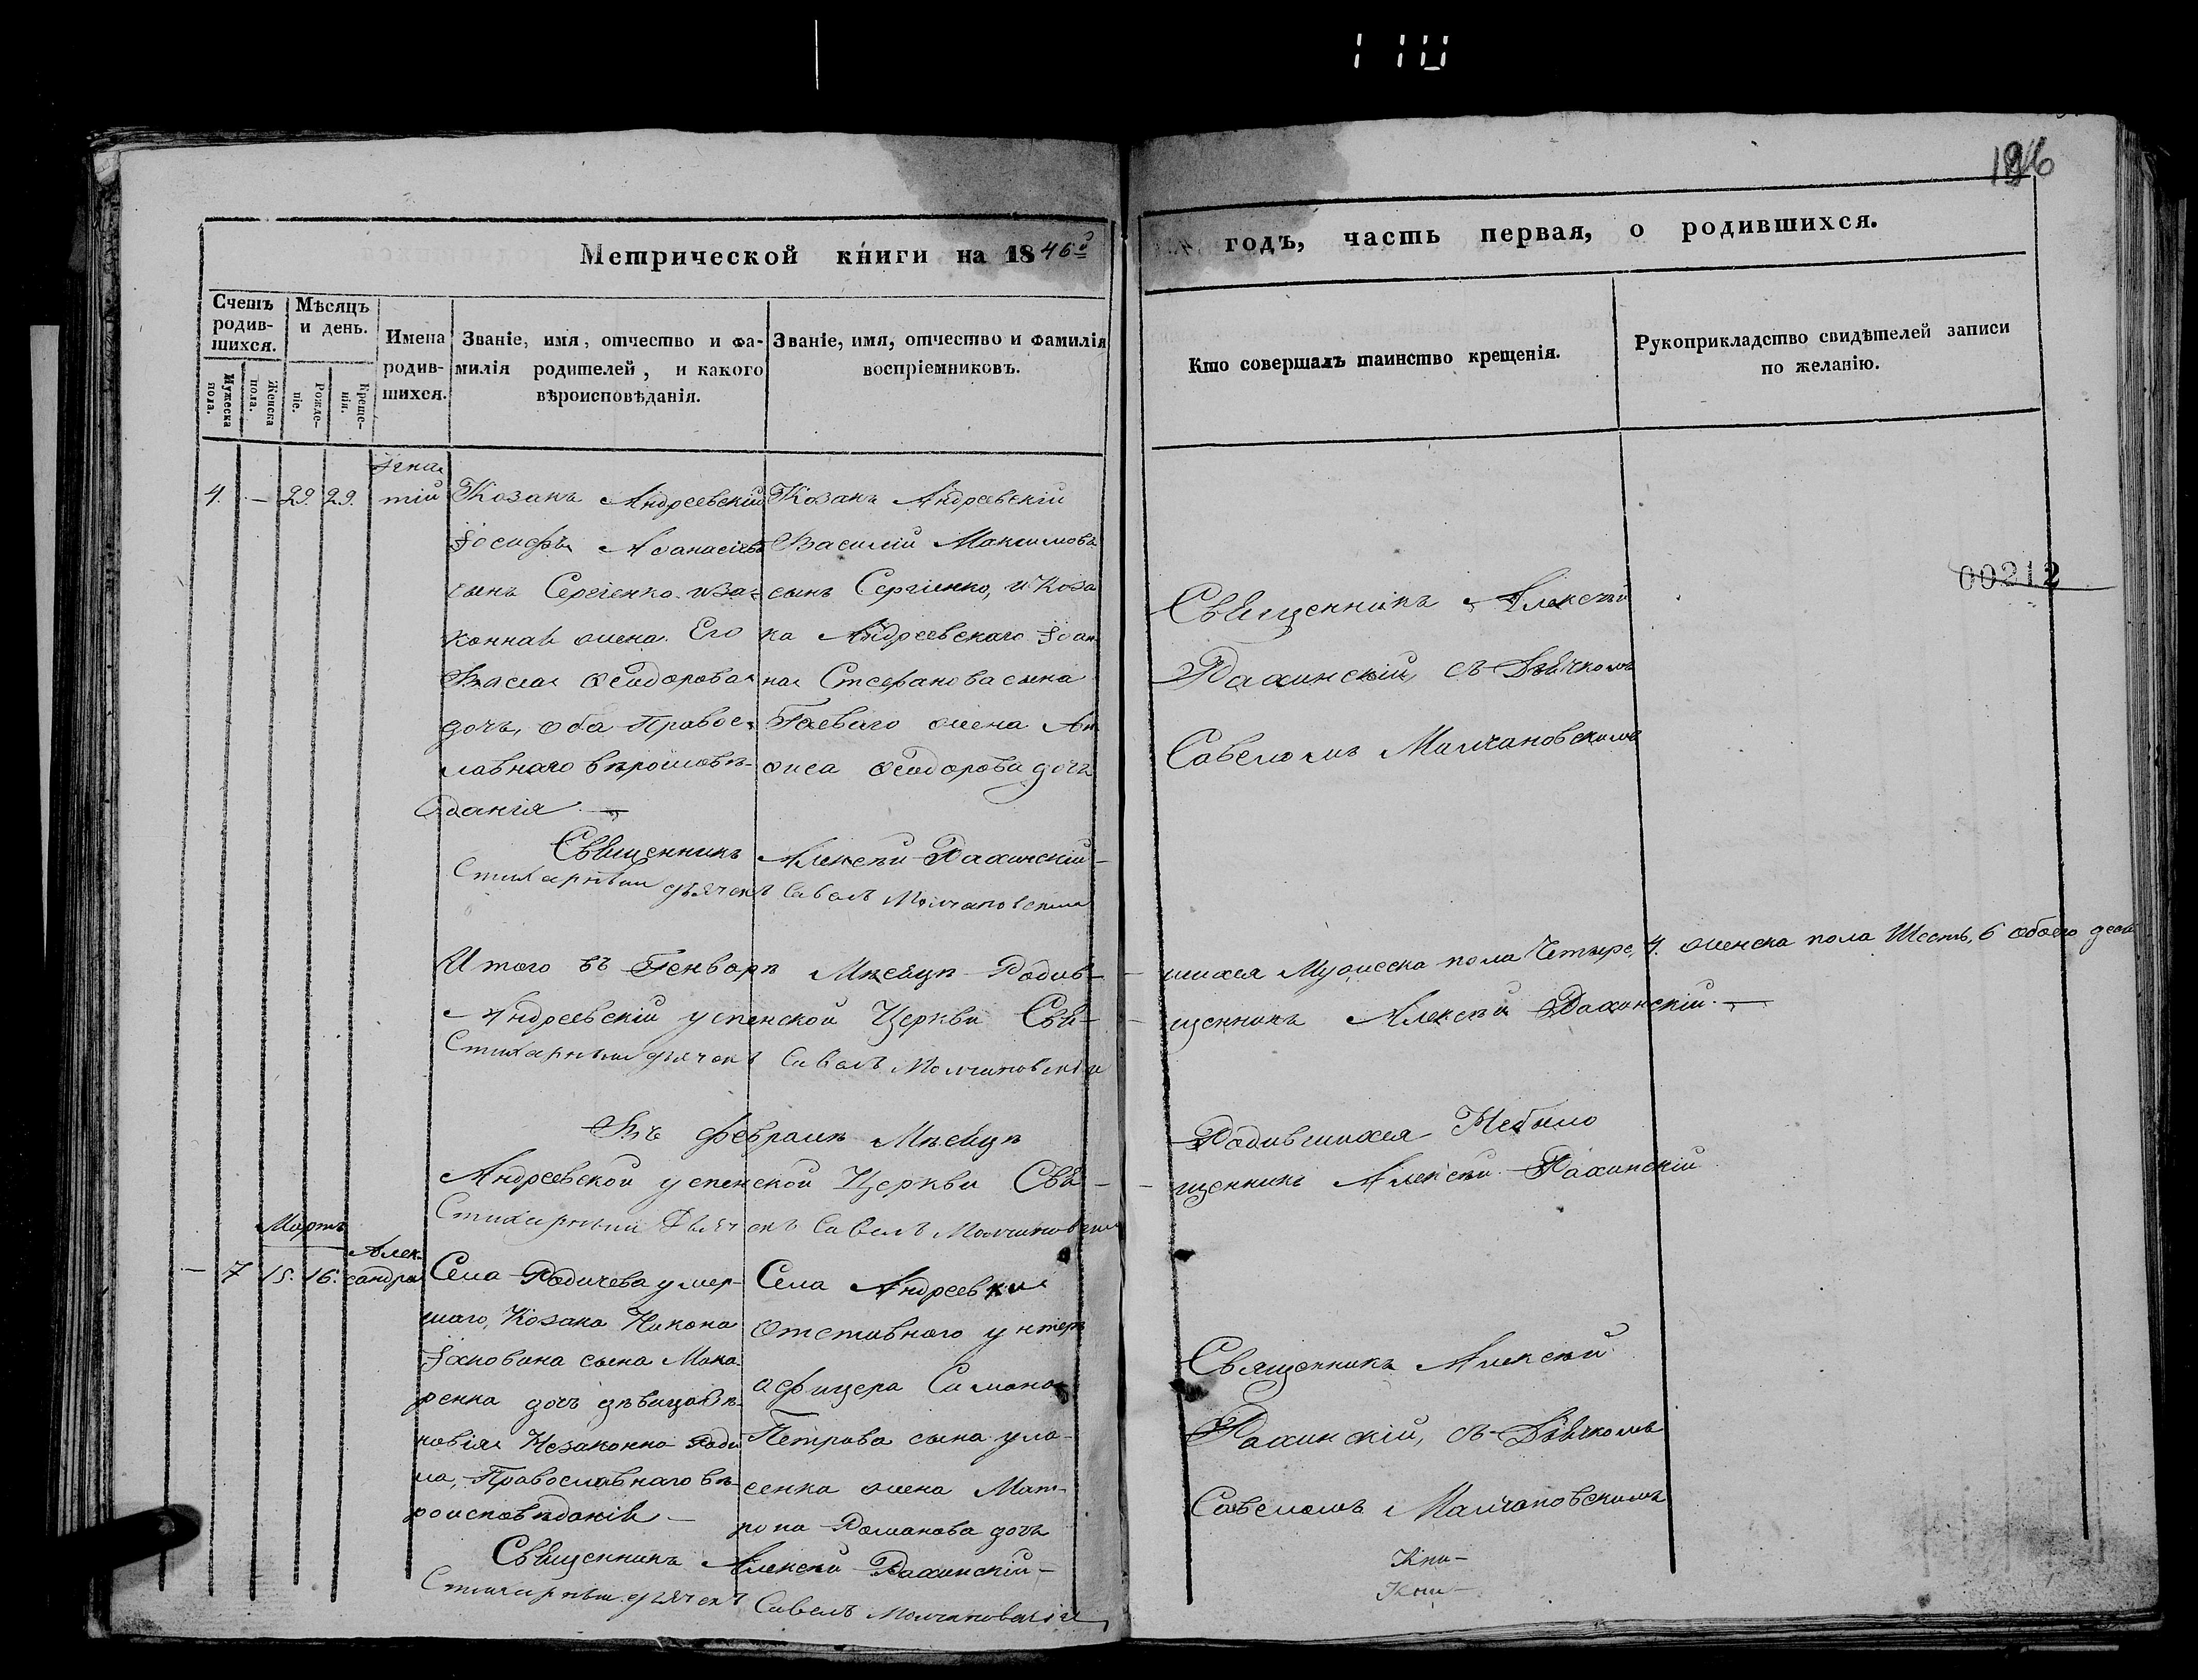 110
196
Метрической книги на 1846й
годъ, часть первая, о родившихся.
Счетъ родив-шихся.
Мужеска пола.
Женска пола.
Мѣсяцъ и день.
Рожде-ніе.
Креще-нія.
Имена родив-шихся.
Званіе, имя, отчество и фа-
милія родителей, и какого
вѣроисповѣданія.
Званіе, имя, отчество и фамилія
воспріемниковъ.
Кто совершалъ таинство крещенія.
Рукоприкладство свидѣтелей записи
по желанію.
4. — 29. 29. Игна
тій
Козакъ Андреевскій
Іосифъ Аѳанасіевъ
сынъ Сергіенко. иза-
конная жена Его
Васса Ѳеодорова
дочь, оба Правос-
лавнаго вѣроисповѣ-
данія. —
Козакъ Андреевскій
Василій Максимовъ
сынъ Сергіенко, и Коза
ка Андреевскаго Іоан
на Стефанова сына
Гаеваго жена Ан
фиса Ѳеодорова дочь
Священникъ Алексѣй
Рахинскій, съ Дьячкомъ
Савеломъ Малчановскимъ
00212
Священникъ Алексѣй Рахинскій —
Стихарный дьячекъ Савелъ Молчановскій
Итого въ Генварѣ Мѣсяцѣ Родив-
шихся Мужеска пола Четыре, 4. женска пола Шесть, 6 обоего
Андреевскій успенской Церкви Свя-
щенникъ Алексѣй Рахинскій. —
Стихарный дьячекъ Савелъ Молчановскій
Въ Февралѣ Мѣсяцѣ
Родившихся Небыло
Андреевской успенской Церкви Свя-
щенникъ Алексѣй Рахинскій
Стихарный Дьячекъ Савелъ Молчановскій
Мартъ
— 7 15. 16. Алек-
сандра
Села Родичева умер-
шаго, Козака Никона
Іаковова сына Мака
ренка дочь дѣвица Ѳе
новія Незаконно Роди
ла, Православнаго вѣ-
роисповѣданія —
Села Андреевки
Отставного унтеръ
афицера Симона
Петрова сына ула-
сенка жена Мат-
рона Романова дочь
Священникъ Алексѣй
Рахинскій, съ Дьячкомъ
Савеломъ Малчановскимъ
Священникъ Алексѣй Рахинскій —
Стихарный дьячекъ Савелъ Молчановскій
Кни-
Кни-